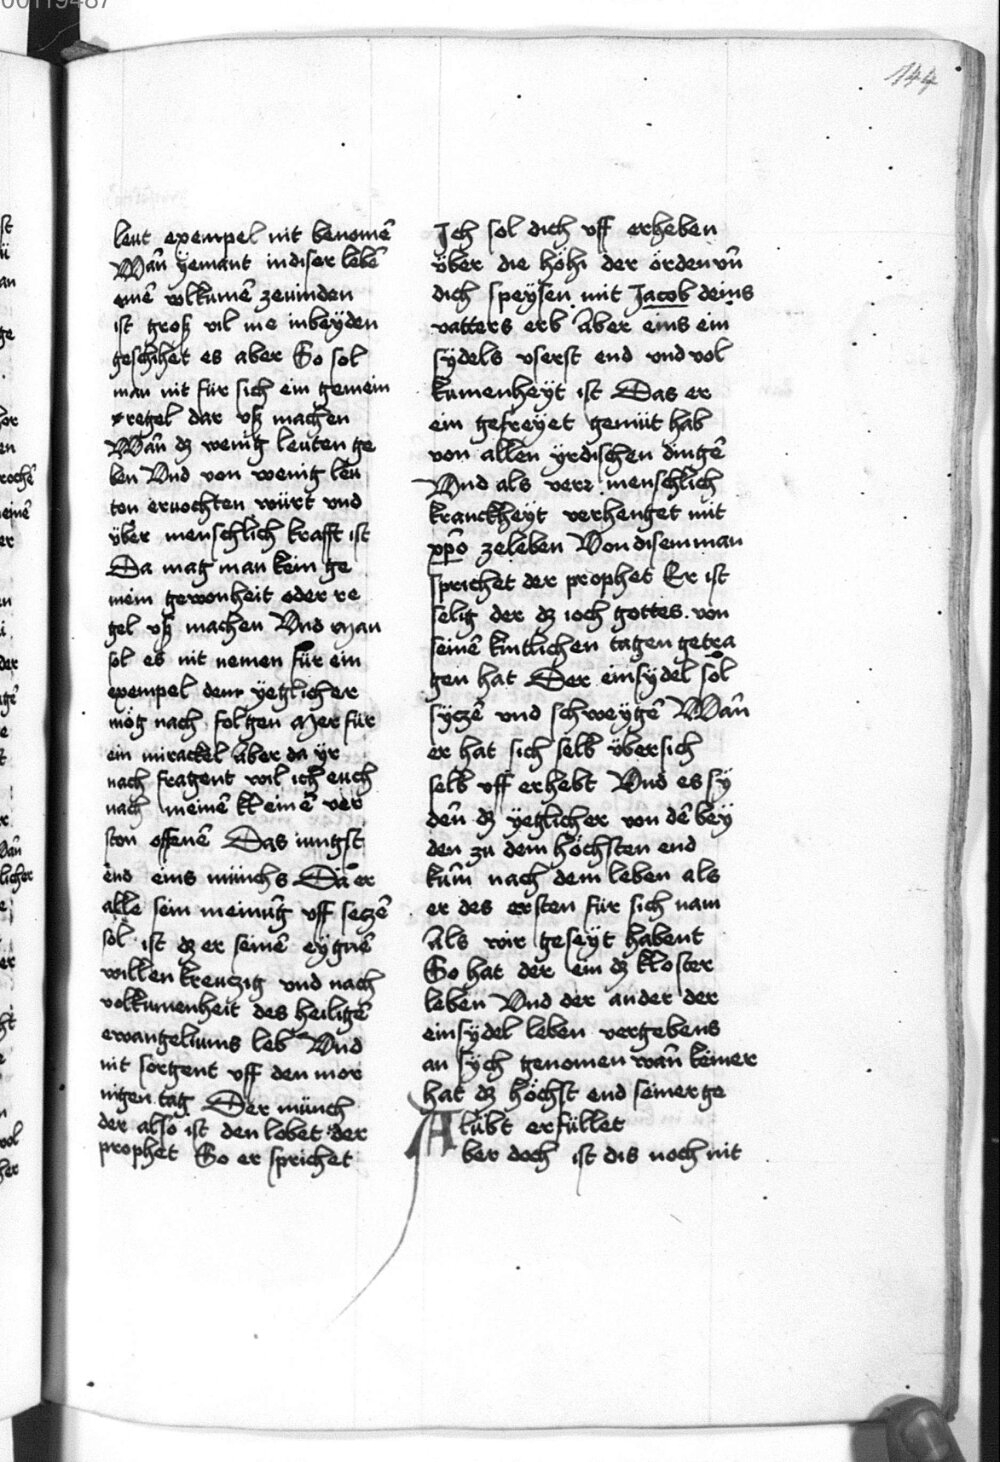 00119487
144
leut exempel nit benomē
Wañ yemant in diser lebē
einē volkumē zeuinden
ist groß vil me in beyden
geschihet es aber So sol
man nit für sich ein gemein
regel dar vß machen
Wañ dz wenig leuten ge
ben Vnd von wenig leu
ten eruochten würt vnd
über menschlich krafft ist
Da mag man kein ge
mein gewonheit oder re
gel vß machen Vnd man
sol es nit nemen für ein
exempel dem yeglicher
mög nach folgen Mer für
ein mirackel aber da yr
nach fragent wil ich euch
nach meinē kleinē ver
ston offenē Das iungst
end eins münchs Da er
alle sein meinūg vff seczē
sol ist dz er seinē eygnē
willen kreuczig vnd nach
volkumenheit des heiligē
ewangeliums leb Vnd
nit sorgent vff den mor
nigen tag Der münch
der also ist den lobet der
prophet So er sprichet
Ich sol dich vff erheben
über die höhi der örden vñ
dich speysen mit Jacob deins
vatters erb Aber eins ein
sydels vserst end vnd vol
kumenheyt ist Das er
ein gefreyet gemüt hab
von allen yrdischen dingē
Vnd als verr menschlich
kranckheyt verhenget mit
xp̄o zeleben Von disem man
sprichet der prophet Er ist
selig der dz ioch gottes von
seinē kintlichen tagen getra
gen hat Der einsydel sol
syczē vnd schweygē Wañ
er hat sich selb über sich
selb vff erhebt Vnd es sy
deñ dz yeglicher von dē bey
den zu dem höchsten end
kum nach dem leben als
er des ersten für sich nam
Als wir geseyt habent
So hat der ein dz kloster
leben Vnd der ander der
einsydel leben vergebens
an sych genomen wañ keiner
hat dz höchst end seiner ge
lübt erfüllet
Aber doch ist dis noch nit